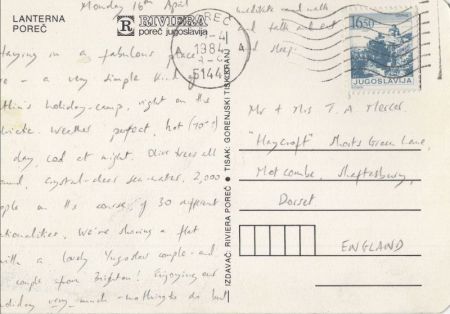 LANTERNA
POREČ
R RIVIERA
poreč jugoslavija
Monday 16th April
Staying in a fabulous place
- a very simple kind of
holiday-camp, right on the
Weather perfect, hot (70°)
day cool at night. Olive trees all
crystal-clear sea-water, 2,000
people on this course of 30 different
nationalities. We're sharing a flat
with a lovely Yugoslav couple and
couple from Brighton! Enjoying our
holiday very much - nothing to do but
meditate and walk
and talk and eat
and sleep.
POREČ
1984
51440
16,50
JUGOSLAVIJA
IZDAVAČ: RIVIERA POREČ • TISAK: GORENJSKI TISK KRANJ
Mr & Mrs T. A Mercer
"Haycroft" Shorts Green Lane,
Motcombe, Shaftesbury,
Dorset
ENGLAND